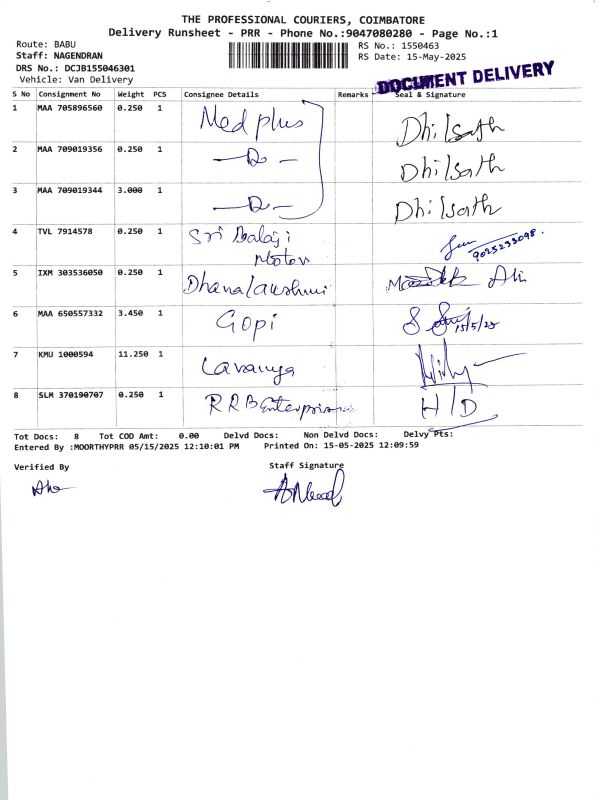 THE PROFESSIONAL COURIERS, COIMBATORE
Delivery Runsheet - PRR - Phone No.:9047080280 - Page No.:1
Route: BABU
RS No.: 1550463
Staff: NAGENDRAN
RS Date: 15-May-2025
DRS No.: DCJB155046301
Vehicle: Van Delivery
DOCUMENT DELIVERY
S No Consignment No Weight PCS Consignee Details Remarks Seal & Signature
1 MAA 705896560 0.250 1 Med plus Dhilsath
2 MAA 709019356 0.250 1 —Do— Dhilsath
3 MAA 709019344 3.000 1 —Do— Dhilsath
4 TVL 7914578 0.250 1 Sri Balaji 9025233098.
Motors
5 IXM 303536050 0.250 1 Dhanalakshmi Ali
6 MAA 650557332 3.450 1 Gopi 15/5/25
7 KMU 1000594 11.250 1 Lavanya
8 SLM 370190707 0.250 1 RRB Enterprises H/D
Tot Docs: 8 Tot COD Amt: 0.00 Delvd Docs: Non Delvd Docs: Delvy Pts:
Entered By :MOORTHYPRR 05/15/2025 12:10:01 PM Printed On: 15-05-2025 12:09:59
Verified By Staff Signature